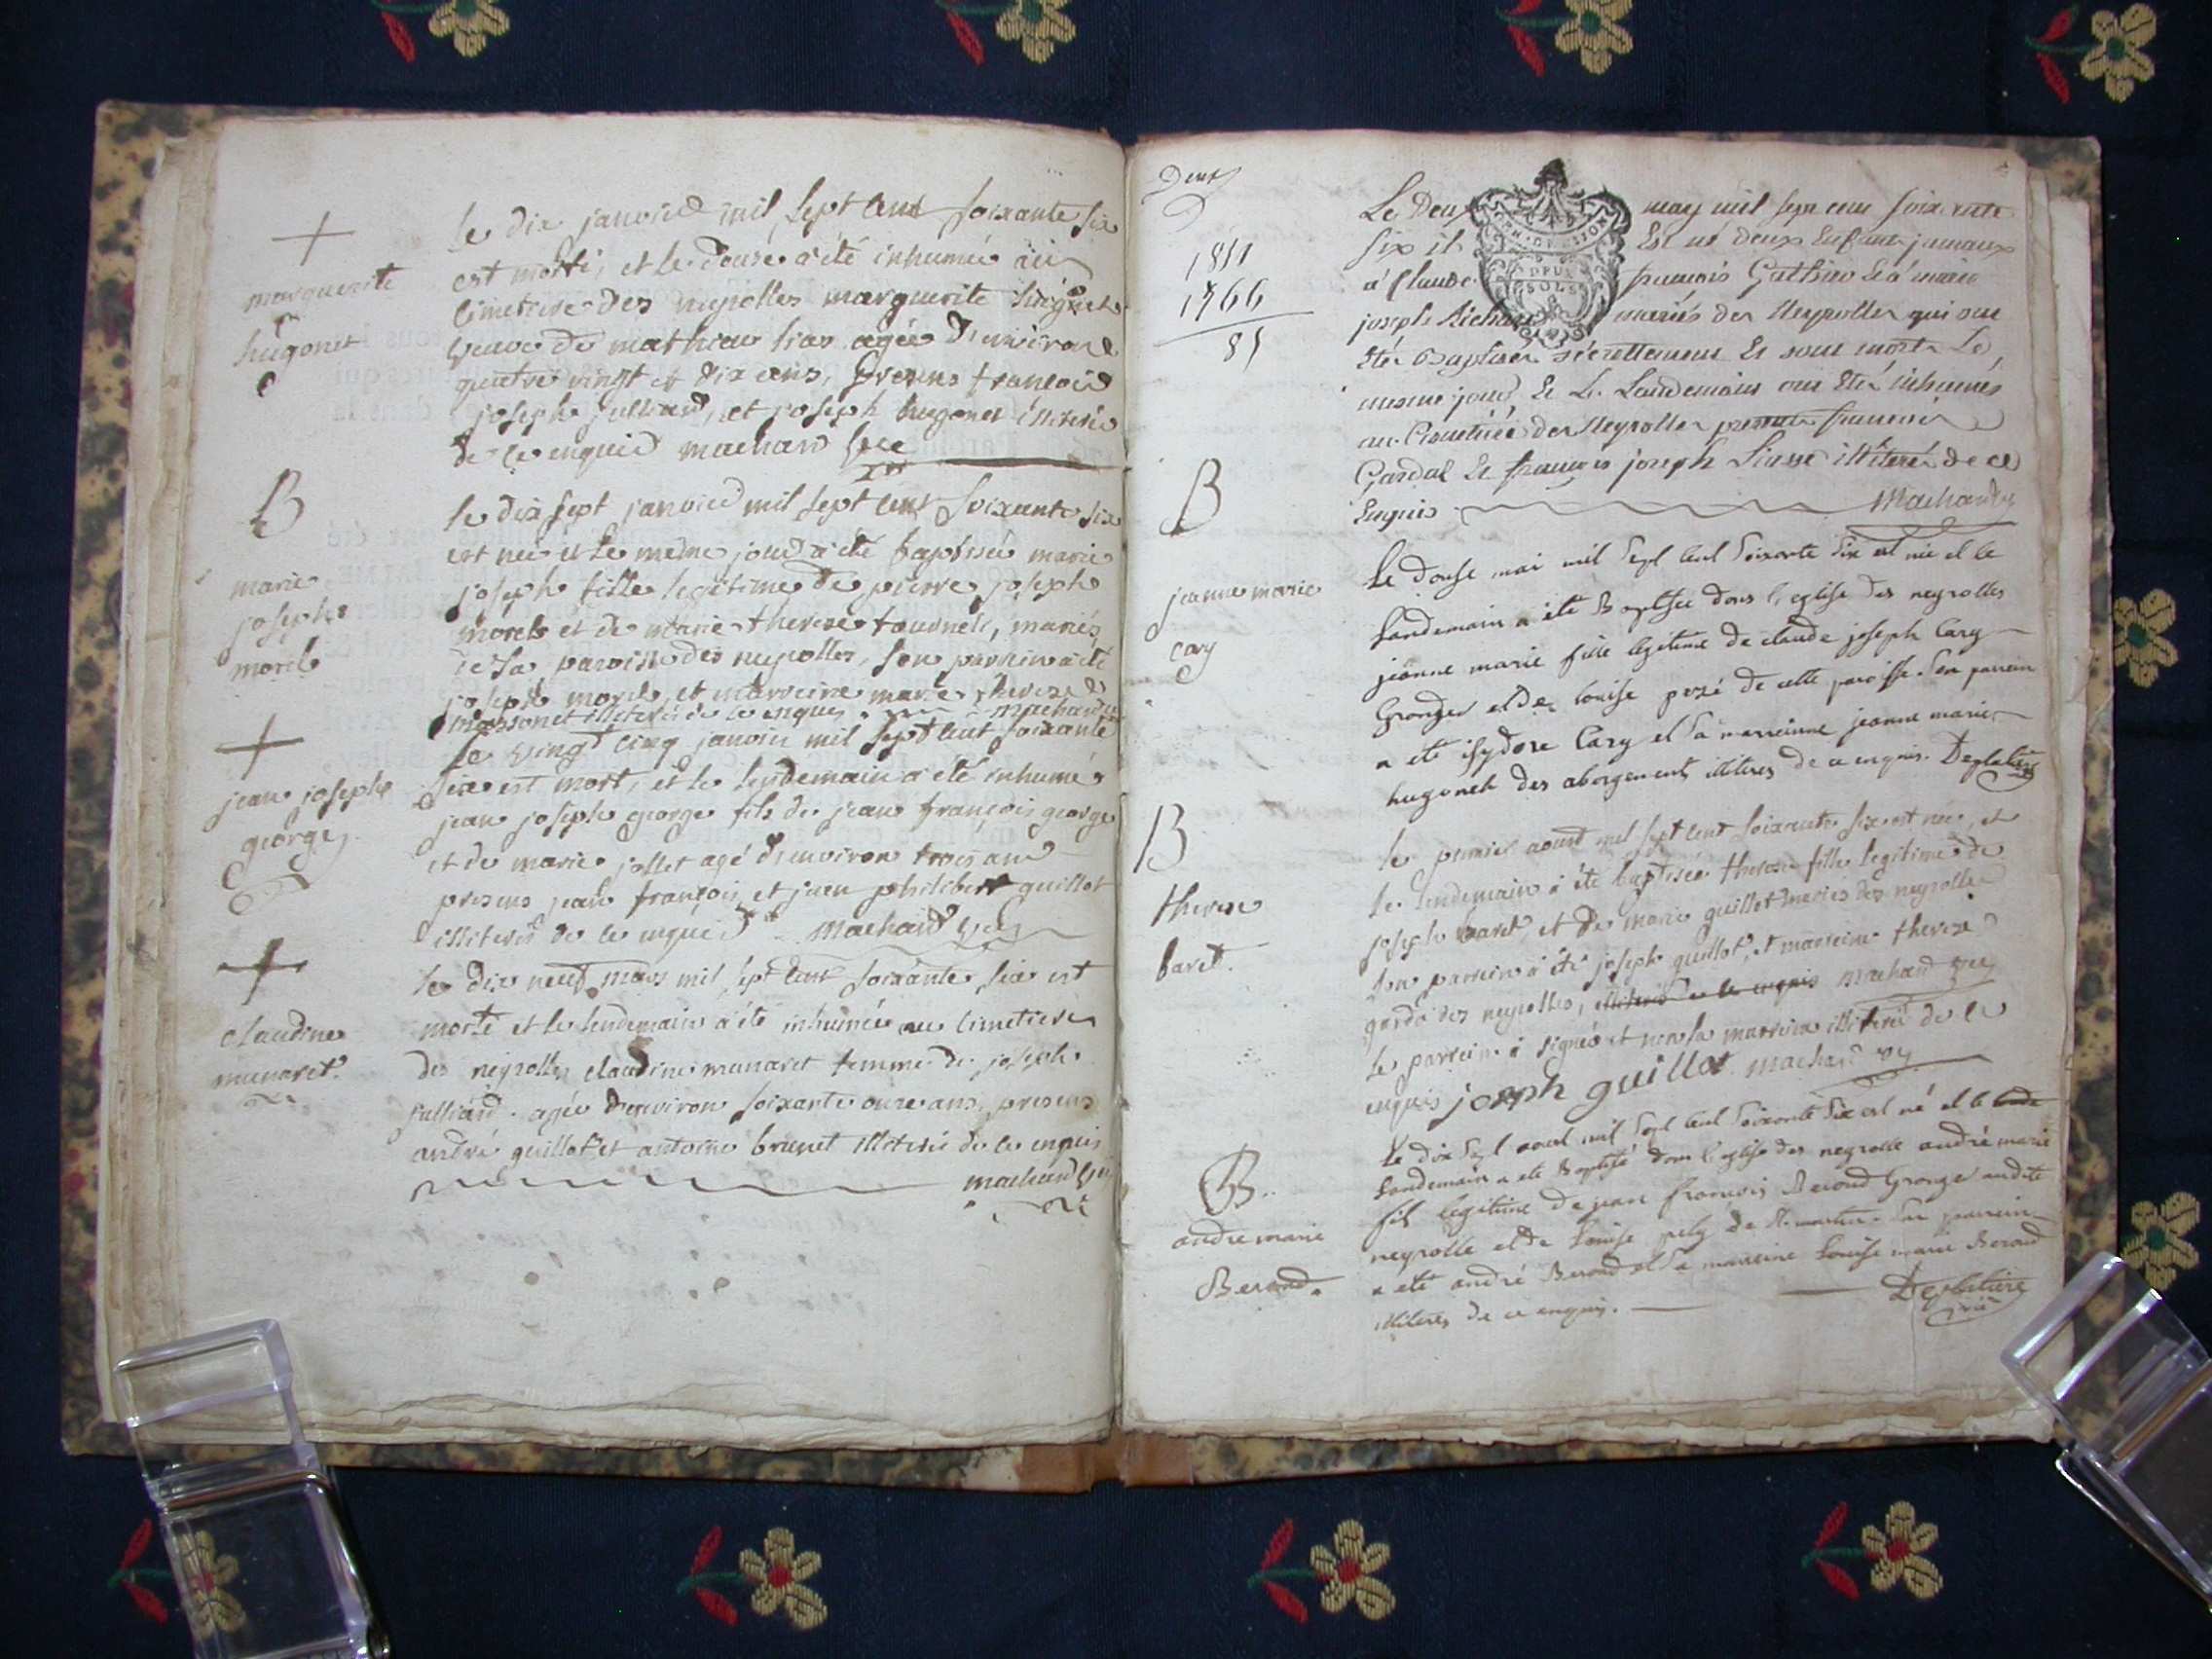 +
marguerite
hugonet
le dix janvier mil sept cent soixante six
est morte, et le douse a été inhumée au
cimetiere des neyrolles marguerite hugonet
veuve de mathieu agée d'environ
quatre vingt et dix ans, presens francois
joseph julliard, et joseph hugonet illiteré
de ce enquis machard
B
marie
joseph
morel
le dix sept janvier mil sept cent soixante six
est née et le meme jour a été baptisée marie
joseph fille legitime de pierre joseph
morel et de marie therese tournel, mariés
de la paroisse des neyrolles, son parrein a été
joseph morel, et marreine marie therese
massonet illiterés de ce enquis machard
+
jean joseph
george
le vingt cinq janvier mil sept cent soixante
six est mort, et le lendemain a été inhumé
jean joseph george fils de jean françois george
et de marie jollet agé d'environ trois ans
presens jean françois et jean philibert guillot
illiterés de ce enquis machard
+
claudine
munaret
le dix neuf mars mil sept cent soixante six est
morte et le lendemain a été inhumée au cimetiere
des neyrolles claudine munaret femme de joseph
julliard agée d'environ soixante onze ans, presens
andré guillot et antoine brunet illiterés de ce enquis
machard
Deux
1851
1766
85
DEUX
SOLS
Le Deux may mil sept cent soixante
six il Est né deux Enfants jumaux
a Claude françois et a marie
joseph Richard mariés des Neyrolles qui ont
étés Baptises secrettement Et sont morts Le
mesme jour Et Le Landemain ont Etés inhumés
au Cimetiere des Neyrolles presents francois
Et françois joseph illiterés de ce
Enquis Machard
B
jeanne marie
cary
Le douse mai mil sept cent soixante six est née et le
landemain a été Baptisée dans l'eglise des neyrolles
jeanne marie fille legitime de claude joseph Cary
Granger et de louise de cette paroisse. Son parrein
a été isydore Cary et sa marreinne jeanne marie
hugonet des abergements illiteres de ce enquis. Deplatiere
B
therese
baret
le premier aoust mil sept cent soixante six est née, et
le lendemain a été baptisée therese fille legitime de
joseph baret, et de marie guillot mariés des neyrolles
son parrein a été joseph guillot, et marreine therese
des neyrolles, illiterés de ce enquis machard
le parrein a signé et non la marreine illiterée de ce
enquis joseph guillot machard
B
andre marie
Beroud
Le dix sept aout mil sept cent soixante six est né et le
landemain a été Baptisé dans l'eglise des neyrolle andré marie
fils legitime de jean francois Beroud Granger audite
neyrolle et de Louise de St. martin. Son parrein
a été andré Beroud et sa marreine Louise marie Beroud
illiteres de ce enquis. Deplatiere